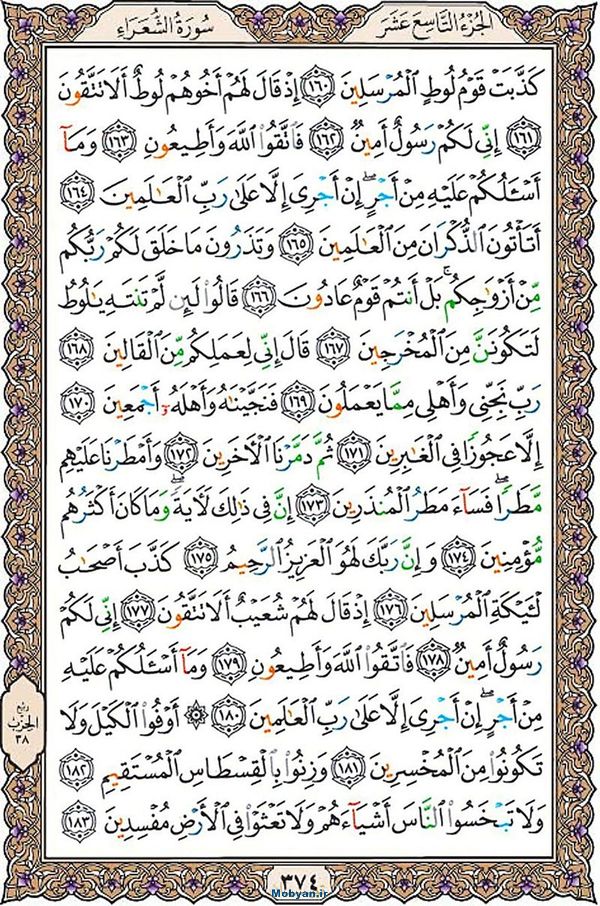 الجزء التاسع عشر
سورة الشعراء
كَذَّبَتْ قَوْمُ لُوطٍ الْمُرْسَلِينَ ﴿١٦٠﴾ إِذْ قَالَ لَهُمْ أَخُوهُمْ لُوطٌ أَلَا تَتَّقُونَ
﴿١٦١﴾ إِنِّي لَكُمْ رَسُولٌ أَمِينٌ ﴿١٦٢﴾ فَاتَّقُوا اللَّهَ وَأَطِيعُونِ ﴿١٦٣﴾ وَمَآ
أَسْـَٔلُكُمْ عَلَيْهِ مِنْ أَجْرٍ ۖ إِنْ أَجْرِيَ إِلَّا عَلَىٰ رَبِّ الْعَـٰلَمِينَ ﴿١٦٤﴾
أَتَأْتُونَ الذُّكْرَانَ مِنَ الْعَـٰلَمِينَ ﴿١٦٥﴾ وَتَذَرُونَ مَا خَلَقَ لَكُمْ رَبُّكُم
مِّنْ أَزْوَٰجِكُم ۚ بَلْ أَنتُمْ قَوْمٌ عَادُونَ ﴿١٦٦﴾ قَالُوا لَئِن لَّمْ تَنتَهِ يَـٰلُوطُ
لَتَكُونَنَّ مِنَ الْمُخْرَجِينَ ﴿١٦٧﴾ قَالَ إِنِّي لِعَمَلِكُم مِّنَ الْقَالِينَ ﴿١٦٨﴾
رَبِّ نَجِّنِي وَأَهْلِي مِمَّا يَعْمَلُونَ ﴿١٦٩﴾ فَنَجَّيْنَـٰهُ وَأَهْلَهُۥٓ أَجْمَعِينَ ﴿١٧٠﴾
إِلَّا عَجُوزًا فِي الْغَـٰبِرِينَ ﴿١٧١﴾ ثُمَّ دَمَّرْنَا الْـَٔاخَرِينَ ﴿١٧٢﴾ وَأَمْطَرْنَا عَلَيْهِم
مَّطَرًا ۖ فَسَآءَ مَطَرُ الْمُنذَرِينَ ﴿١٧٣﴾ إِنَّ فِي ذَٰلِكَ لَـَٔايَةً ۖ وَمَا كَانَ أَكْثَرُهُم
مُّؤْمِنِينَ ﴿١٧٤﴾ وَإِنَّ رَبَّكَ لَهُوَ الْعَزِيزُ الرَّحِيمُ ﴿١٧٥﴾ كَذَّبَ أَصْحَـٰبُ
لْـَٔيْكَةِ الْمُرْسَلِينَ ﴿١٧٦﴾ إِذْ قَالَ لَهُمْ شُعَيْبٌ أَلَا تَتَّقُونَ ﴿١٧٧﴾ إِنِّي لَكُمْ
رَسُولٌ أَمِينٌ ﴿١٧٨﴾ فَاتَّقُوا اللَّهَ وَأَطِيعُونِ ﴿١٧٩﴾ وَمَآ أَسْـَٔلُكُمْ عَلَيْهِ
مِنْ أَجْرٍ ۖ إِنْ أَجْرِيَ إِلَّا عَلَىٰ رَبِّ الْعَـٰلَمِينَ ﴿١٨٠﴾ ۞ أَوْفُوا الْكَيْلَ وَلَا
تَكُونُوا مِنَ الْمُخْسِرِينَ ﴿١٨١﴾ وَزِنُوا بِالْقِسْطَاسِ الْمُسْتَقِيمِ ﴿١٨٢﴾
وَلَا تَبْخَسُوا النَّاسَ أَشْيَآءَهُمْ وَلَا تَعْثَوْا فِي الْأَرْضِ مُفْسِدِينَ ﴿١٨٣﴾
ربع
الحزب
٣٨
٣٧٤
Mobyan.ir